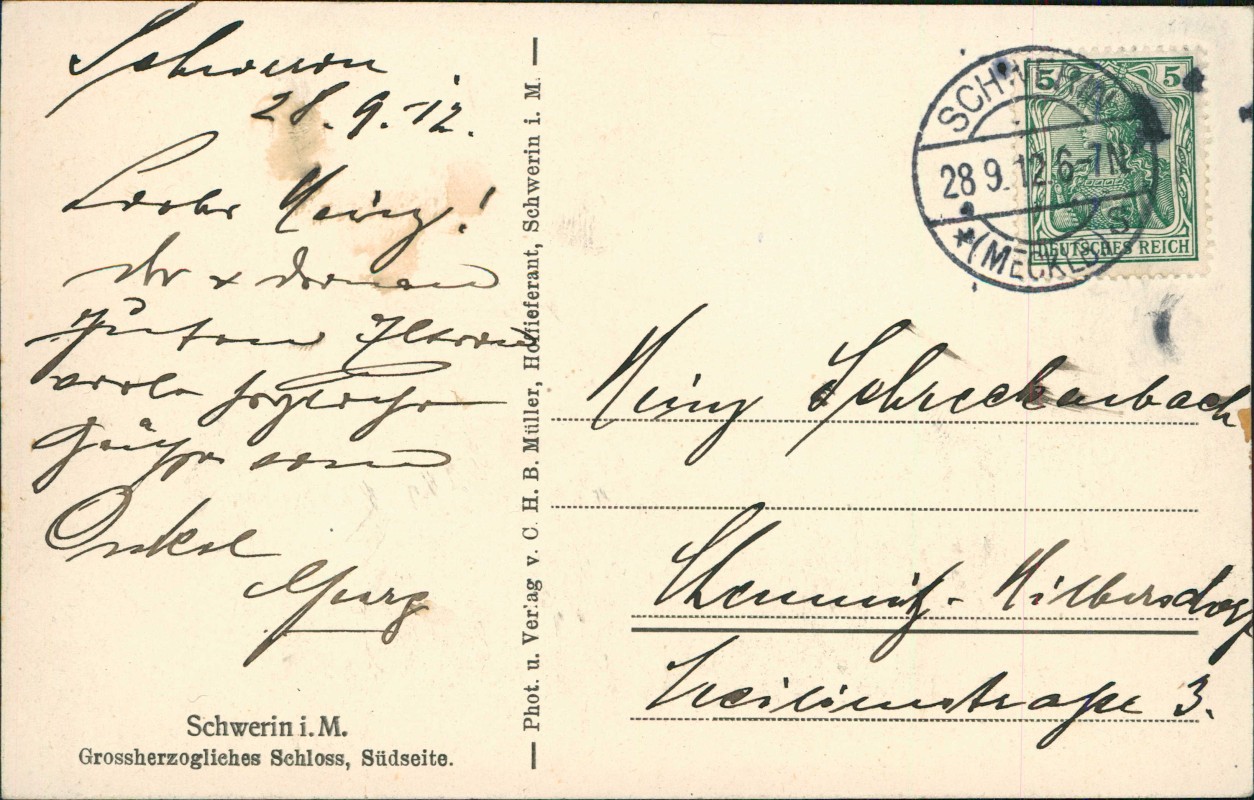 Schwerin
28.9.12.
Lieber Heinz!
Dir & deinen
guten Eltern
viele herzliche
Grüße vom
Onkel
Georg
Schwerin i. M.
Grossherzogliches Schloss, Südseite.
Phot. u. Verlag v. C. H. B. Müller, Hoflieferant, Schwerin i. M.
SCHWERIN
28 9.12 6-7N
*(MECKLB) S
5 5
DEUTSCHES REICH
Heinz Schreckenbach
Chemnitz-Hilbersdorf
Cäcilienstraße 3.